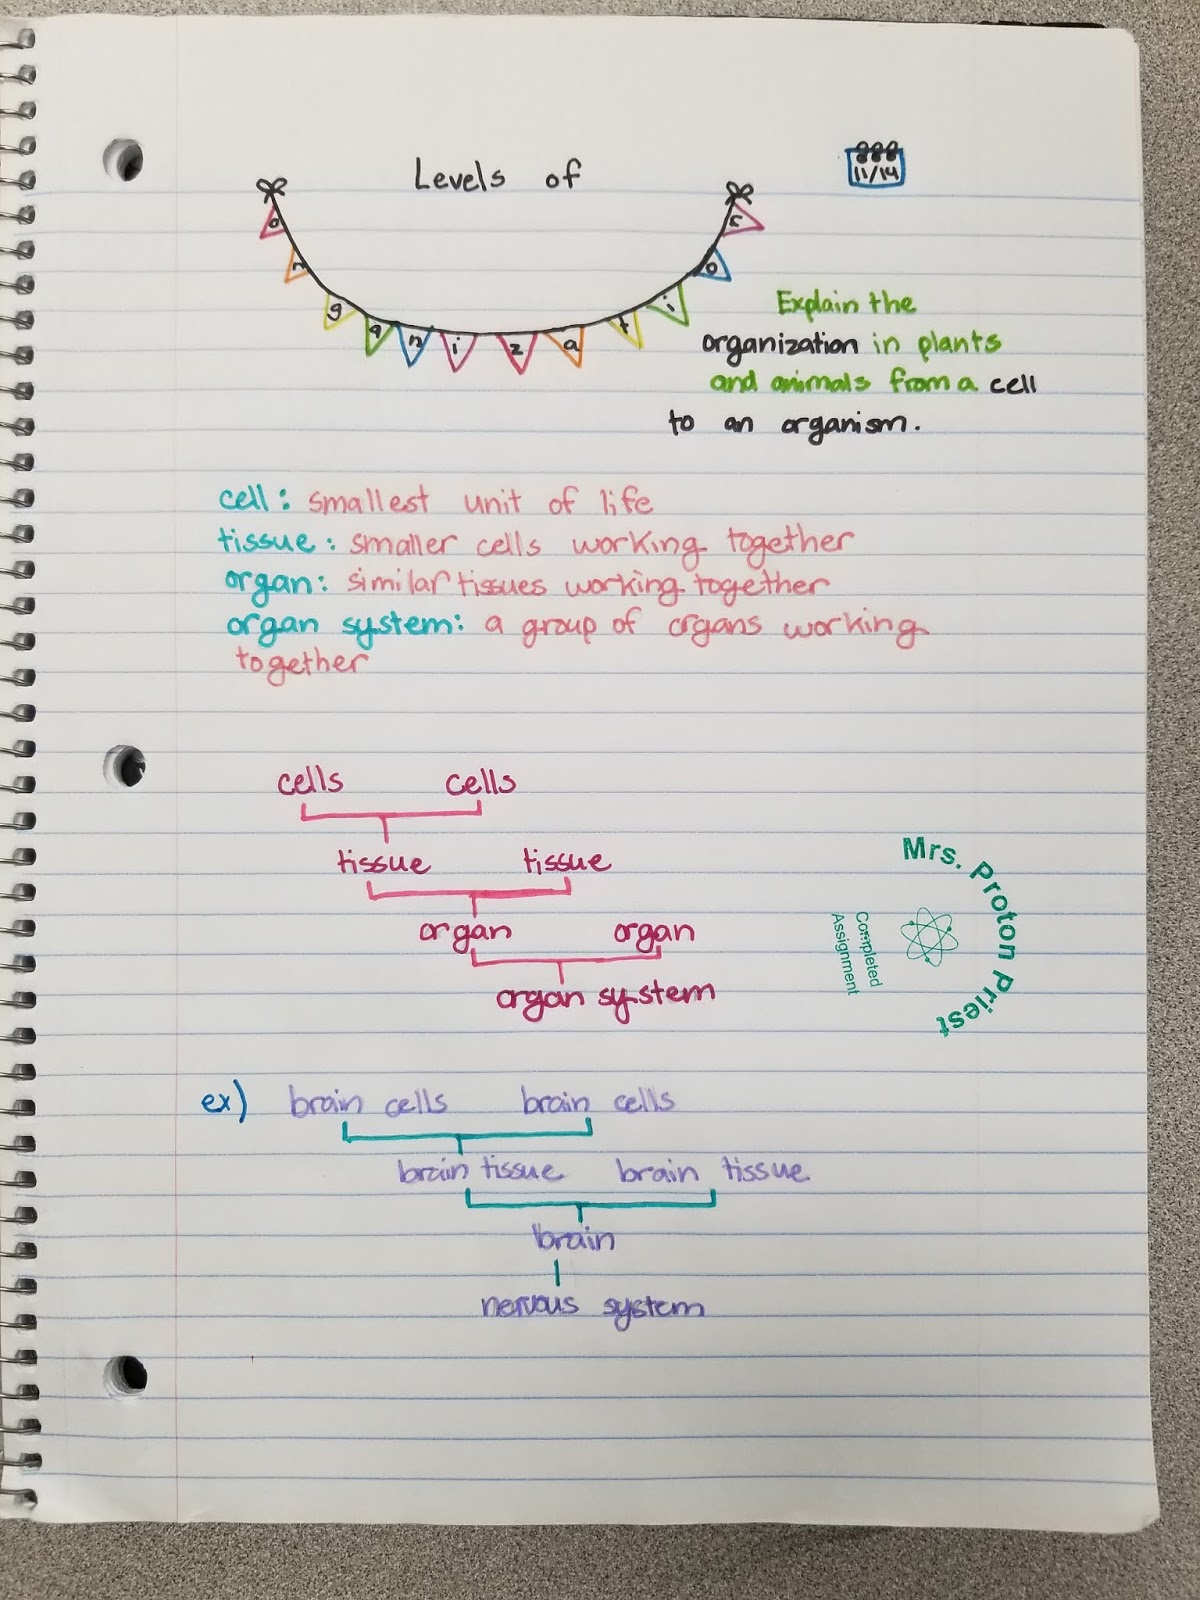 Levels of
organization
11/14
Explain the
organization in plants
and animals from a cell
to an organism.
cell: smallest unit of life
tissue: smaller cells working together
organ: similar tissues working together
organ system: a group of organs working
together
cells cells
tissue tissue
organ organ
organ system
Mrs. Proton Priest
Completed
Assignment
ex) brain cells brain cells
brain tissue brain tissue
brain
nervous system